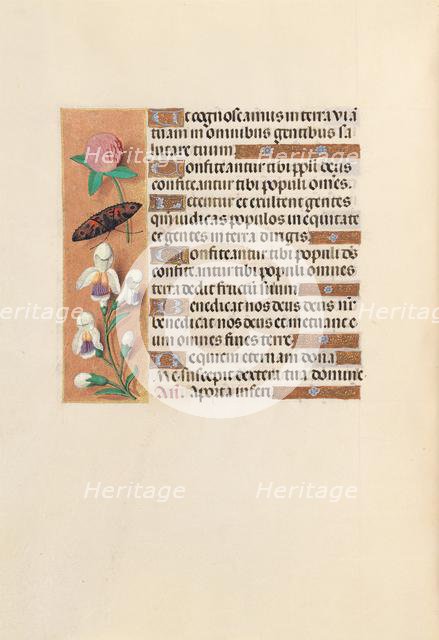 Ut cognoscamus in terra viā
tuam in omnibus gentibus sa
lutare tuum
Confiteantur tibi pp̄li deus
confiteantur tibi populi om̄es.
Letentur et exultent gentes
qm̄ iudicas populos in equitate
et gentes in terra dirigis
Confiteantur tibi populi ds̄
confiteantur tibi populi omnes
terra dedit fructū suum
Benedicat nos deus deus nr̄
benedicat nos deus et metuant e
um omnes fines terre
Requiem eternam dona
Me suscepit dextera tua domine
An̄. A porta inferi
Heritage
Images